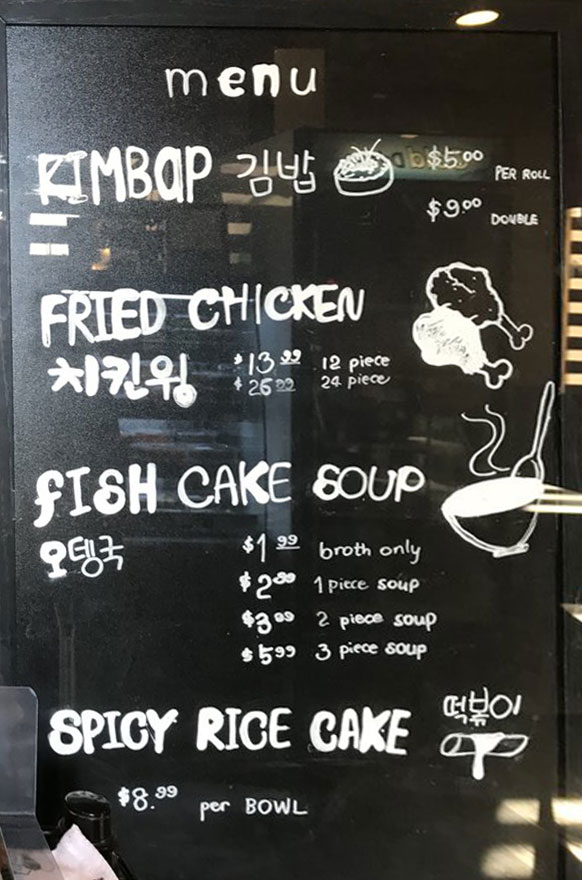 menu
KIMBAP 김밥 $5.00 PER ROLL
$9.00 DOUBLE
FRIED CHICKEN
치킨윙 $13.99 12 piece
$26.99 24 piece
FISH CAKE SOUP
오뎅국 $1.99 broth only
$2.99 1 piece soup
$3.99 2 piece soup
$5.99 3 piece soup
떡볶이
SPICY RICE CAKE
$8.99 per BOWL